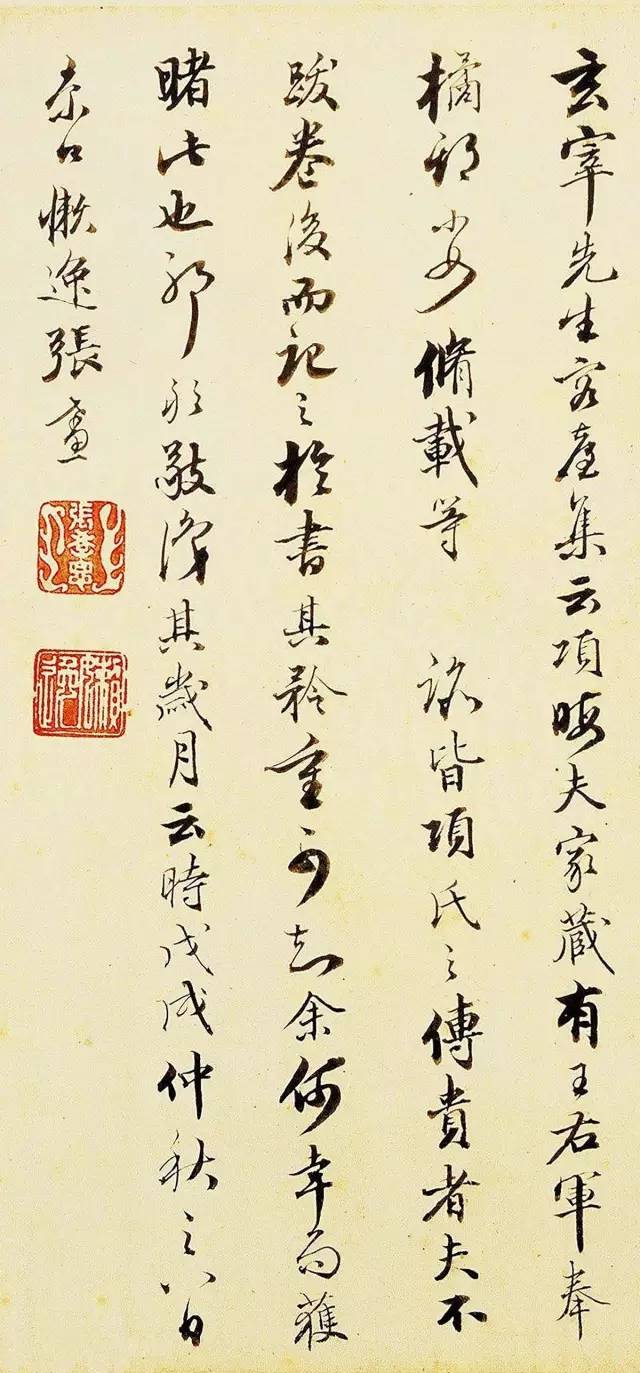 玄宰先生容臺集云項晦夫家藏有王右軍奉
橘小女脩載等皆項氏之傳貴者夫不
跋卷後而記之於書其矜重可知余何幸而獲
睹此也耶敬識其歲月云時戊戌仲秋之八日
京口懶逸張
張孝思
懶逸